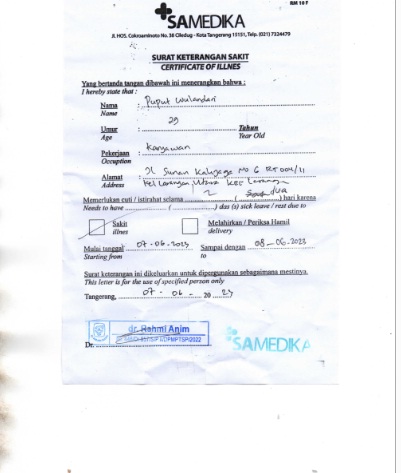 RM 10 F
SAMEDIKA
Jl. HOS. Cokroaminoto No. 38 Ciledug - Kota Tangerang 15151, Telp. (021) 7324479
SURAT KETERANGAN SAKIT
CERTIFICATE OF ILLNES
Yang bertanda tangan dibawah ini menerangkan bahwa :
I hereby state that :
Nama : Puput Wulandari
Name
Umur : 29 Tahun
Age Year Old
Pekerjaan : Karyawan
Occuption
Alamat : Jl Sunan Kalijaga No 6 RT 004/11
Address Kel Larangan Utara Kec Larangan
Memerlukan cuti / istirahat selama 2 ( dua ) hari karena
Needs to have ( ) das (s) sick leave / rest due to
Sakit Melahirkan / Periksa Hamil
illnes delivery
Mulai tanggal 07-06-2023 Sampai dengan 08-06-2023
Starting from to
Surat keterangan ini dikeluarkan untuk dipergunakan sebagaimana mestinya.
This letter is for the use of specified person only
Tangerang, 07-06- 20 23
dr. Rahmi Anim
Dr.
SAMEDIKA